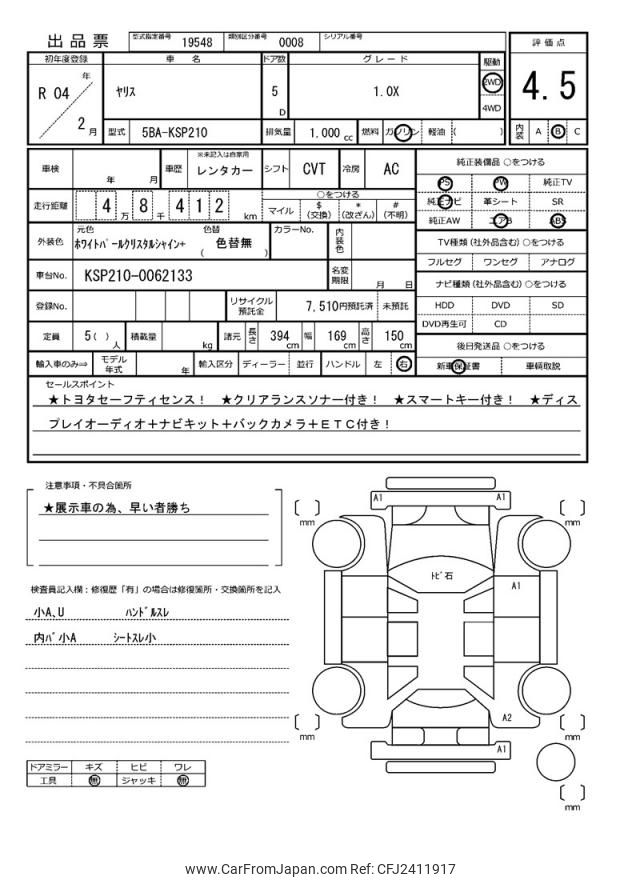 出品票
型式指定番号 19548 類別区分番号 0008 シリアル番号
初年度登録 車名 ドア数 グレード 駆動 評価点
R 04 年 2 月
ヤリス 5 D 1.0X 2WD 4WD
4.5
型式 5BA-KSP210 排気量 1,000 cc 燃料 ガソリン 軽油 ( )
内装 A B C
車検 年 月 車歴 ※未記入は自家用 レンタカー シフト CVT 冷房 AC
純正装備品 ○をつける
PS PW 純正TV
純正ナビ 革シート SR
純正AW エアB ABS
走行距離 4 万 8 千 4 1 2 km
○をつける
マイル $(交換) *(改ざん) #(不明)
外装色 元色 ホワイトパールクリスタルシャイン+ 色替 ( 色替無 ) カラーNo. 内装色
TV種類(社外品含む)○をつける
フルセグ ワンセグ アナログ
車台No. KSP210-0062133 名変期限 月 日
ナビ種類(社外品含む)○をつける
HDD DVD SD
DVD再生可 CD
登録No. リサイクル預託金 7,510円預託済 未預託
定員 5( ) 人 積載量 kg 諸元 長さ 394 cm 幅 169 cm 高さ 150 cm
後日発送品 ○をつける
新車保証書 車輌取説
輸入車のみ⇒ モデル年式 年 輸入区分 ディーラー 並行 ハンドル 左 右
セールスポイント
★トヨタセーフティセンス! ★クリアランスソナー付き! ★スマートキー付き! ★ディス
プレイオーディオ+ナビキット+バックカメラ+ETC付き!
注意事項・不具合箇所
★展示車の為、早い者勝ち
検査員記入欄:修復歴「有」の場合は修復箇所・交換箇所を記入
小A、U ハンドルスレ
内バ小A シートスレ小
A1 A1
mm mm
トビ石
A1
A2
A1
mm mm
mm
ドアミラー キズ ヒビ ワレ
工具 無 ジャッキ 無
www.CarFromJapan.com Ref: CFJ2411917